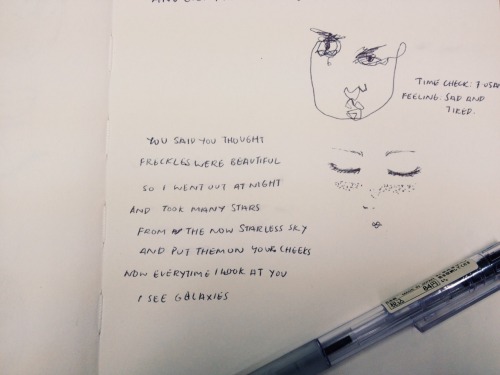 TIME CHECK: 7
FEELING: SAD AND
TIRED.
YOU SAID YOU THOUGHT
FRECKLES WERE BEAUTIFUL
SO I WENT OUT AT NIGHT
AND TOOK MANY STARS
FROM THE NOW STARLESS SKY
AND PUT THEM ON YOUR CHEEKS
NOW EVERYTIME I LOOK AT YOU
I SEE GALAXIES